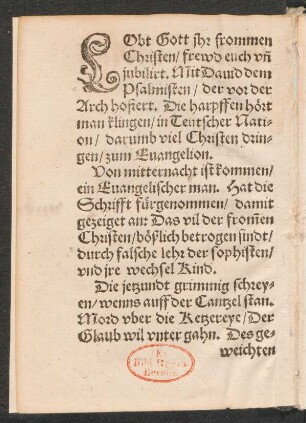 LObt Gott jhr frommen
Christen/ frewd euch vñ
jubilirt. Mit Dauid dem
Psalmisten / der vor der
Arch hofiert. Die harpffen hört
man klingen/ in Teutscher Nati-
on/ darumb viel Christen drin-
gen/ zum Euangelion.
Von mitternacht ist kommen/
ein Euangelischer man. Hat die
Schrifft fürgenommen/ damit
gezeiget an: Das vil der from̃en
Christen/ hößlich betrogen sindt/
durch falsche lehr der sophisten/
vnd jre wechsel Kind.
Die jetzundt grimmig schrey-
en/ wenns auff der Cantzel stan.
Mord vber die Ketzereye/ Der
Glaub wil vnter gahn. Des ge-
weichten